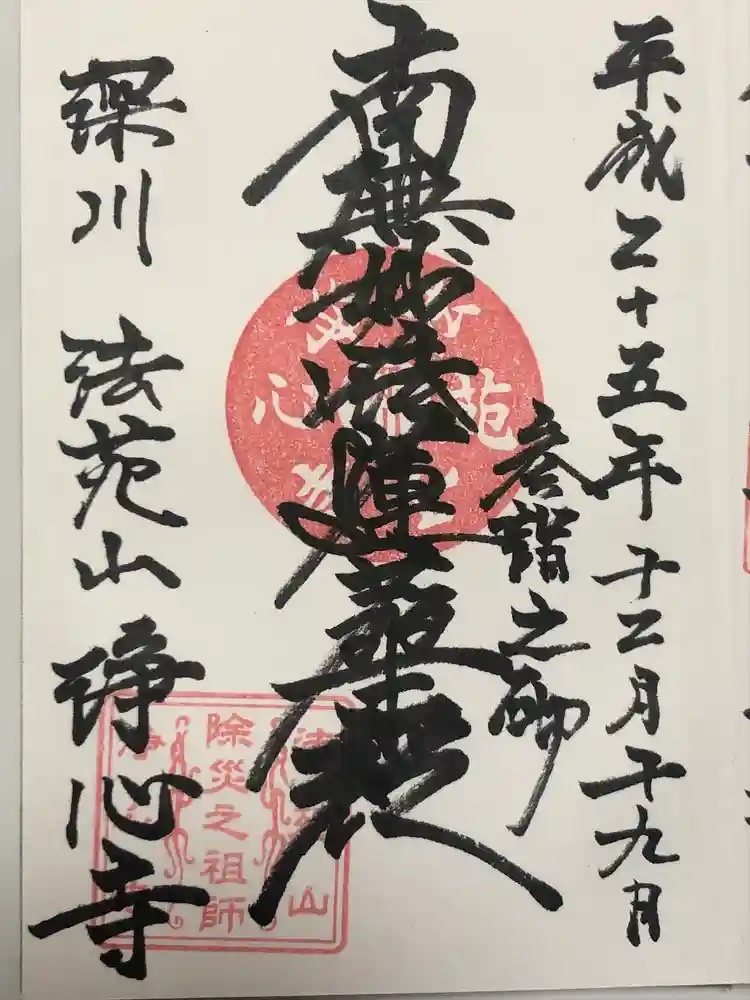 平成二十五年十二月十九日
参詣之砌
南無妙法蓮華経
深川 法苑山 浄心寺
法苑山
除災之祖師
浄心寺